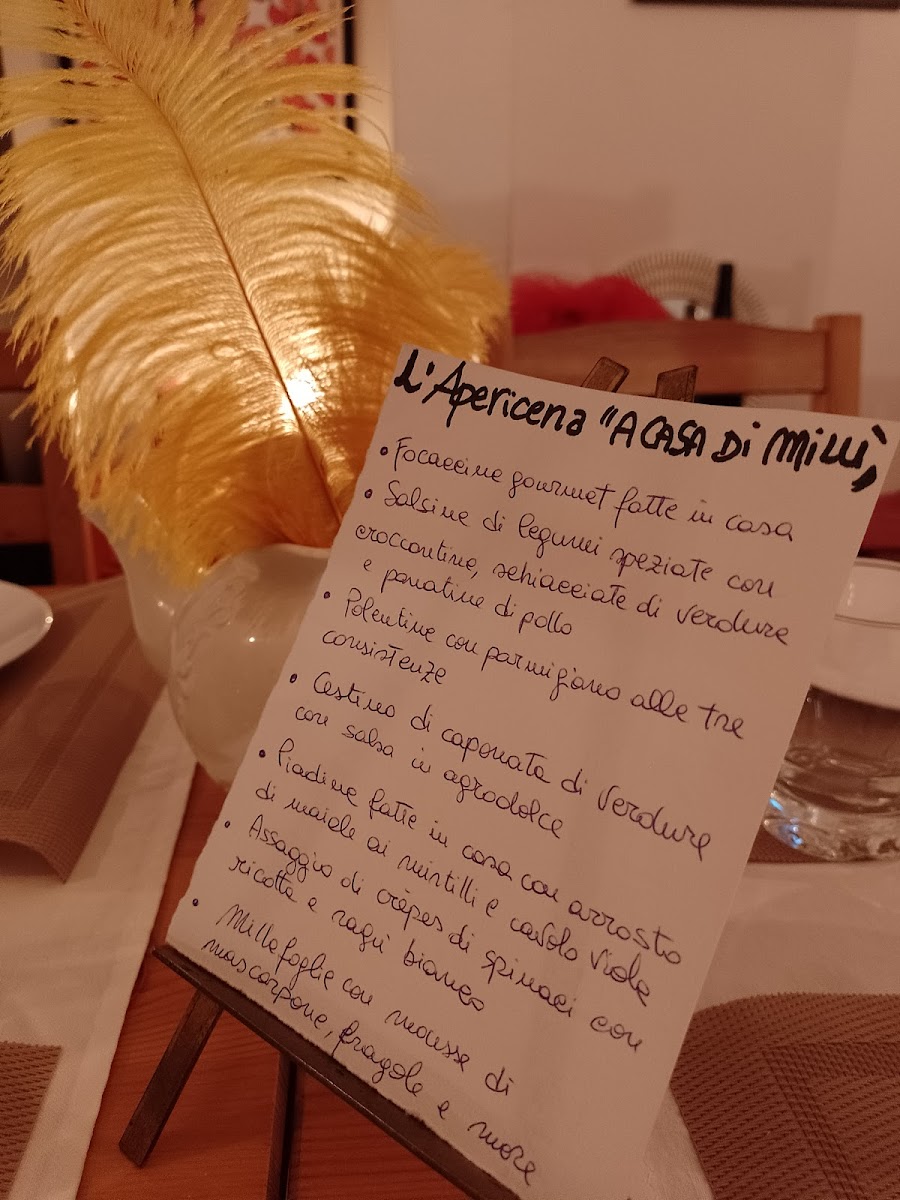 L'Apericena "A CASA DI Milli"
• Focaccine gourmet fatte in casa
• Salsine di legumi speziate con
croccantine, schiacciate di verdure
e panatine di pollo
• Polentine con parmigiano alle tre
consistenze
• Cestino di caponata di verdure
con salsa in agrodolce
• Piadine fatte in casa con arrosto
di maiale ai mirtilli e cavolo viola
• Assaggio di crêpes di spinaci con
ricotta e ragù bianco
• Millefoglie con mousse di
mascarpone, fragole e more